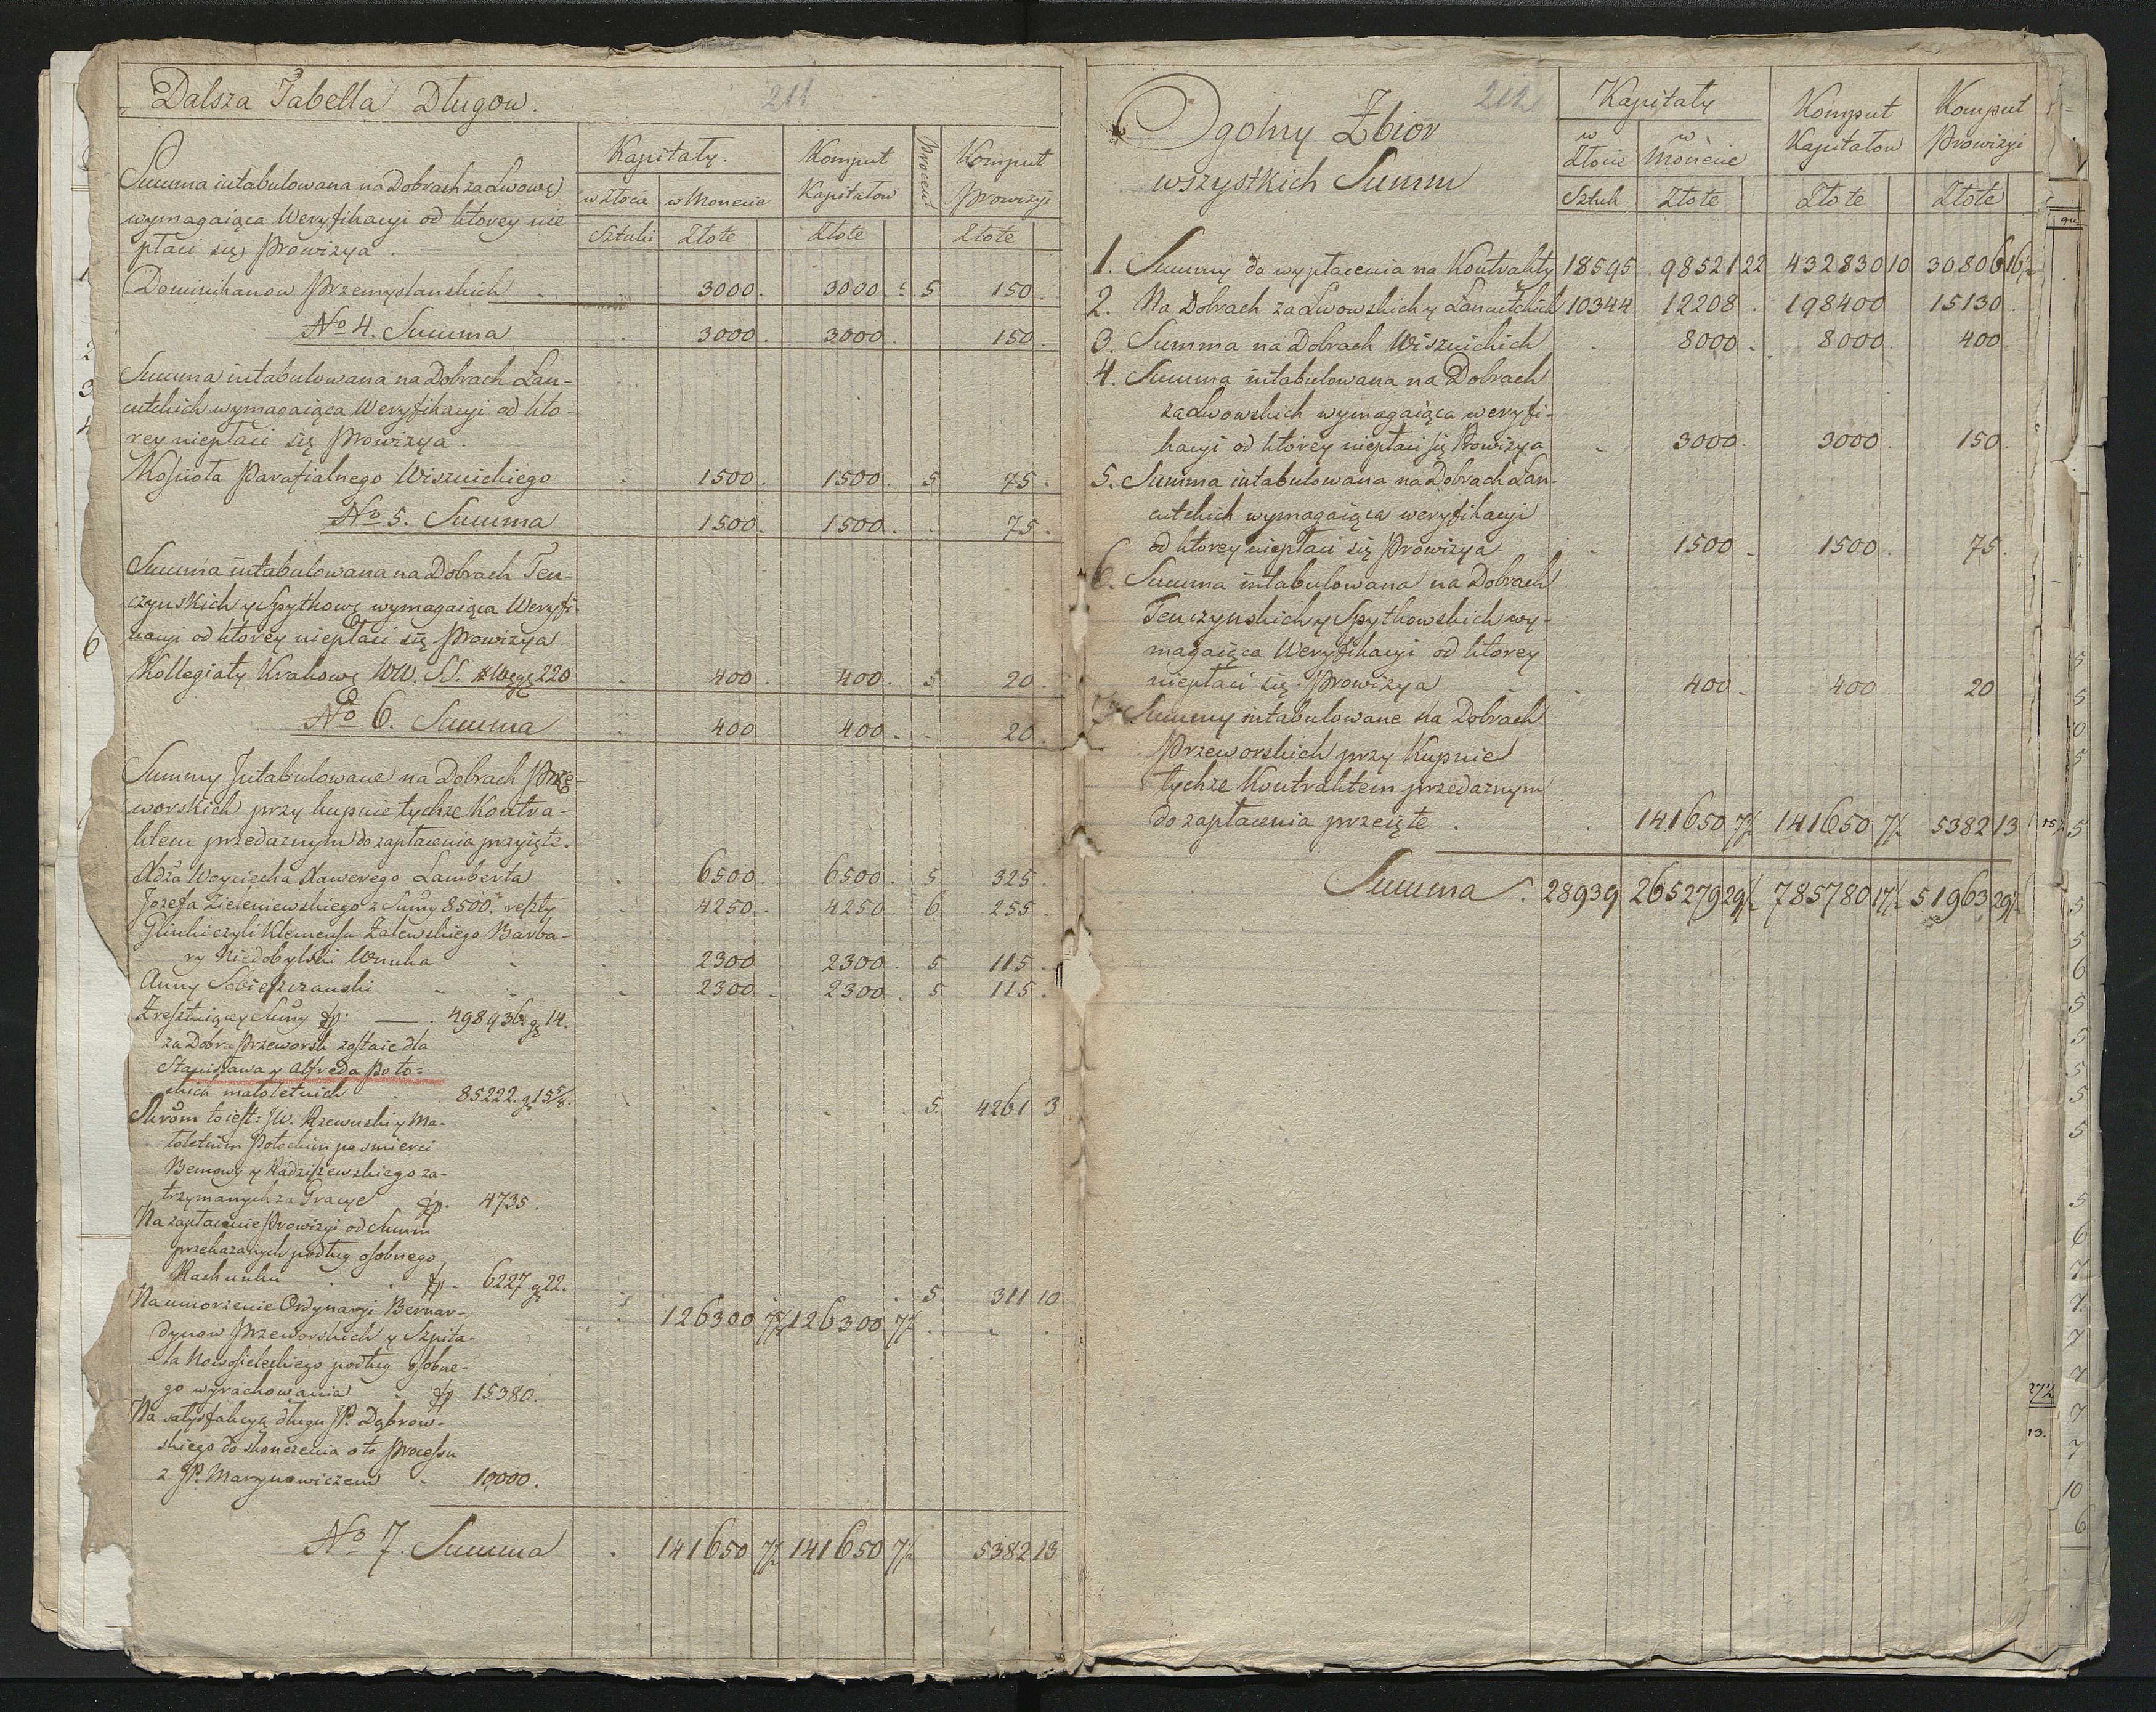 Dalsza Tabella Długow.
211
Kapitały.
Komput Kapitałow
Procent
Komput Prowizyi
w Złocie
w Monecie
Sztuki
Złote
Złote
Złote
Summa intabulowana na Dobrach zaLwowę
wymagaiąca Weryfikacyi od ktorey nie
płaci się Prowizya.
Dominikanow Przemyslanskich 3000. 3000. 5 150.
No 4. Summa 3000. 3000. 150.
Summa intabulowana na Dobrach Łan-
cutckich wymagaiąca Weryfikacyi od kto-
rey niepłaci się Prowizya.
Kościoła Parafialnego Wisznickiego 1500. 1500. 5 75.
No 5. Summa 1500. 1500. 75.
Summa intabulowana na Dobrach Ten-
czynskich y Spytkowę wymagaiąca Weryfi-
kacyi od ktorey niepłaci się Prowizya
Kollegiaty Krakowę WW. SS. 220 400. 400. 5 20.
No 6. Summa 400 400. 20.
Summy Jntabulowane na Dobrach Prze-
worskich przy kupnie tychże Kontra-
ktem przedaznym do zapłacenia przyięte.
Xdza Woyciecha Xawerego Lamberta 6500. 6500. 5 325.
Jozefa Zieleniewskiego z Sumy 8500. reszty 4250. 4250. 6 255.
Glinki czyli Klemensa Zalewskiego Barba-
ry Niedobylski Wnuka 2300 2300. 5 115.
Anny Sobieszczanski 2300. 2300. 5 115.
Zresztuiącey Sumy fp: 498936. g 14.
za Dobr. Przeworsk zostaie dla
Stanisława y Alfreda Poto=
ckich małoletnich 85222. g 15 5/8. 5. 4261 3
Skrom to iest: JW. Rzewuski y Ma-
łoletnim Potockim po smierci
Bemowy y Radziszewskiego za-
trzymanych za Gracye fp. 4735.
Na zapłacenie Prowizyi od Summ
przekazanych podług osobnego
Rachunku fp. 6227 g 22. 5 311 10
Na umorzenie Ordynaryi Bernar- 126300 7½ 126300 7½
dynow Przeworskich y Szpita-
la Nowosieleckiego podług osobne-
go wyrachowania fp 15380.
Na satysfakcyą długu JP. Dąbrow-
skiego do skonczenia oto Processu
z JP. Marynowiczem 10000.
No 7. Summa 141650 7½ 141650 7½ 5382 13
212
Ogolny Zbior
wszystkich Summ
Kapitały
Komput Kapitałow
Komput Prowizyi
w Złocie
w Monecie
Sztuk
Złote
Złote
Złote
1. Summy do wypłacenia na Kontrakty 18595 98521 22 432830 10 30806 16½
2. Na Dobrach zaLwowskich y Łancutckich 10344 12208. 198400 15130.
3. Summa na Dobrach Wisznickich 8000. 8000. 400
4. Summa intabulowana na Dobrach
zaLwowskich wymagaiąca weryfi-
kacyi od ktorey niepłaci się Prowizya 3000. 3000. 150.
5. Summa intabulowana na Dobrach Łan-
cutckich wymagaiąca weryfikacyi
od ktorey niepłaci się Prowizya 1500. 1500. 75.
6. Summa intabulowana na Dobrach
Tenczynskich y Spytkowskich wy-
magaiąca Weryfikacyi od ktorey
niepłaci się Prowizya 400. 400 20
7. Summy intabulowane na Dobrach
Przeworskich przy Kupnie
tychże Kontraktem przedaznym
do zapłacenia przeięte. 141650 7½ 141650 7½ 5382 13
Summa. 28939 265279 29½ 785780 17½ 51963 29½